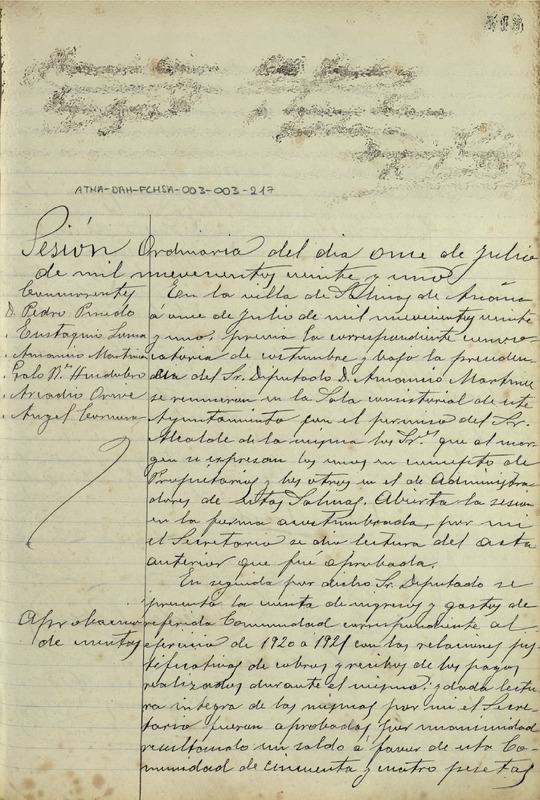 ATHA-DAH-FCHSA-003-003-217
Sesión Ordinaria del dia once de Julio
de mil novecientos veinte y uno
Concurrentes
D. Pedro Pinedo
Eustaquio
Amancio Martinez
Pablo Rz. Huidobro
Arcadio
Angel
En la villa de Salinas de Añana
á once de Julio de mil novecientos veinte
y uno, previa la correspondiente convo-
catoria de costumbre y bajo la presiden-
cia del Sr. Diputado D. Amancio Martinez
se reunieron en la Sala consistorial de este
Ayuntamiento con el permiso del Sr.
Alcalde de la misma los Sres. que al mar-
gen se expresan los unos en concepto de
Propietarios y los otros en el de Administra-
dores de estas Salinas. Abierta la sesion
en la forma acostumbrada, por mi
el Secretario se dio lectura del acta
anterior que fué aprobada.
En seguida por dicho Sr. Diputado se
presentó la cuenta de ingresos y gastos de
Aprobacion
de cuentas
referida Comunidad correspondiente al
ejercicio de 1920 á 1921 con las relaciones jus-
tificativas de cobros y recibos de los pagos
realizados durante el mismo: y dada lectu-
ra integra de las mismas por mi el Secre-
tario fueron aprobadas por unanimidad
resultando un saldo á favor de esta Co-
munidad de cincuenta y cuatro pesetas